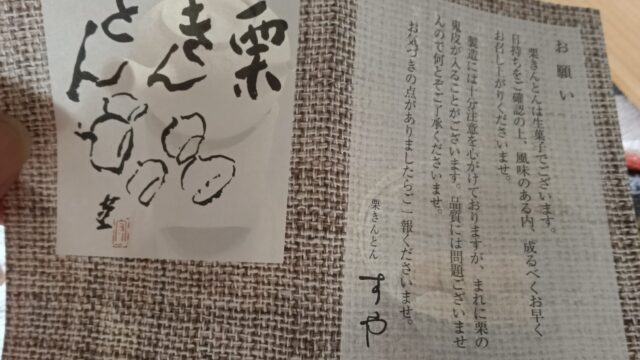 お願い
栗きんとんは生菓子でございます。
日持ちをご確認の上、風味のある内、成るべくお早く
お召し上がりくださいませ。
製造には十分注意を心がけておりますが、まれに栗の
鬼皮が入ることがございます。品質には問題ございませ
んので何とぞご了承くださいませ。
お気づきの点がありましたらご一報くださいませ。
栗きんとん すや
栗
きん
とん